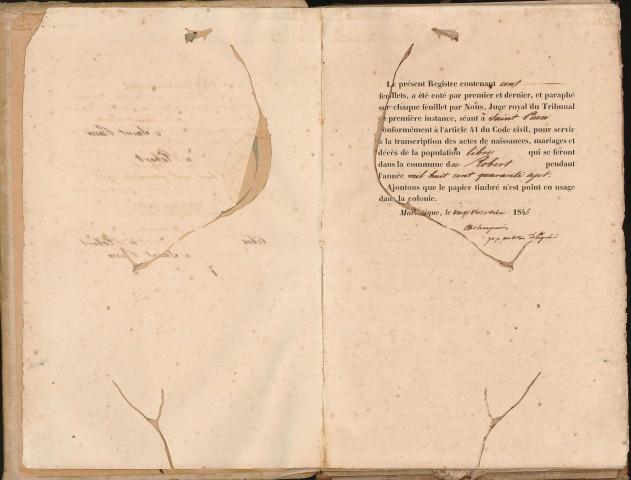 Le présent Registre contenant cent
feuillets, a été coté par premier et dernier, et paraphé
sur chaque feuillet par Nous, Juge royal du Tribunal
de première instance, séant à Saint Pierre
conformément à l'article 41 du Code civil, pour servir
à la transcription des actes de naissances, mariages et
décès de la population libre qui se feront
dans la commune du Robert pendant
l'année mil huit cent quarante sept.
Ajoutons que le papier timbré n'est point en usage
dans la colonie.
Martinique, le 1846